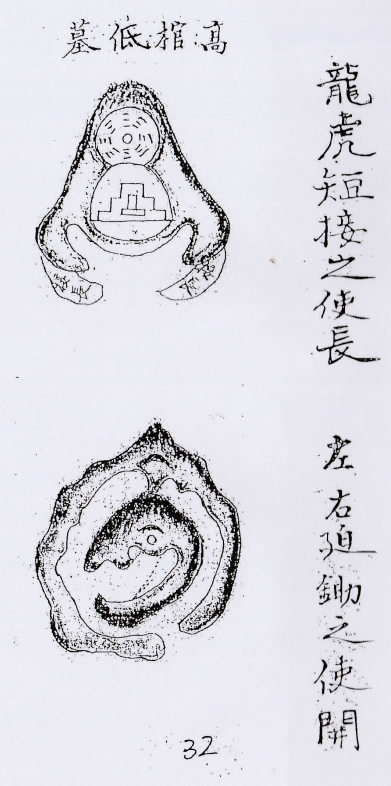 龍虎短接之使長
左右迫鋤之使開
高棺低墓
32